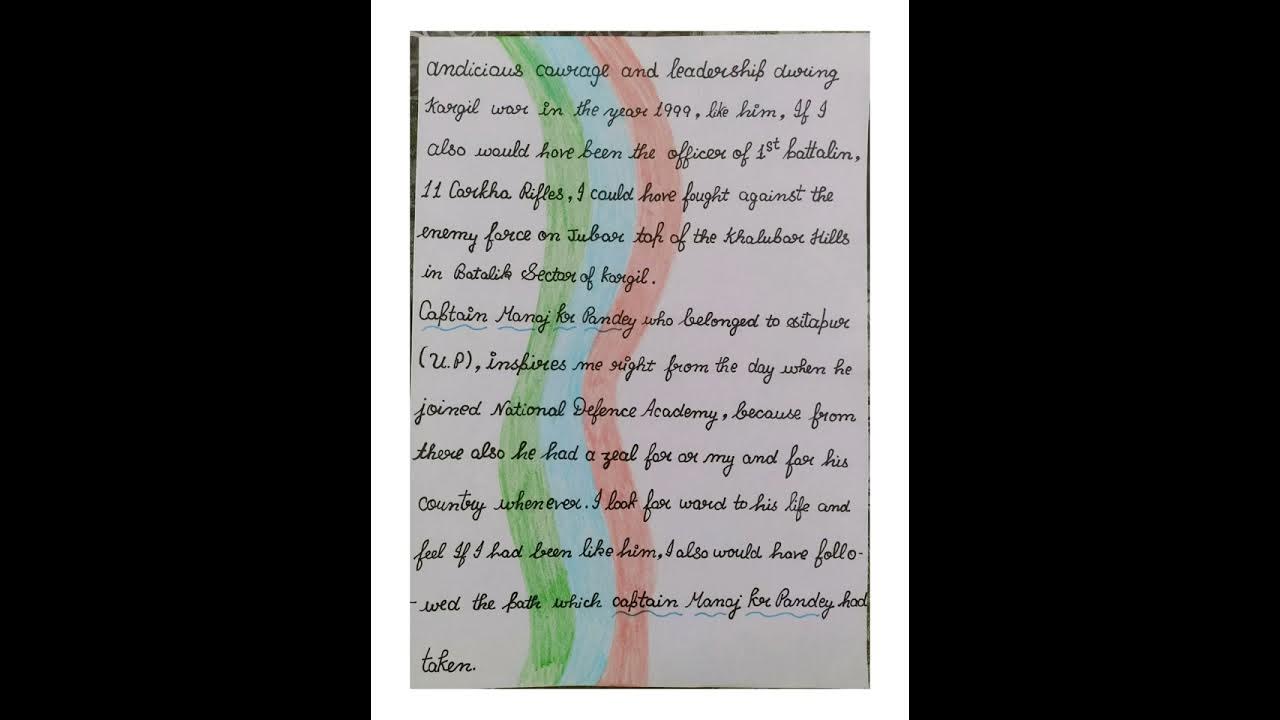 andicious courage and leadership during
Kargil war in the year 1999, like him, If I
also would have been the officer of 1st battalin,
11 Corkha Rifles, I could have fought against the
enemy force on Jubar top of the Khalubar Hills
in Batalik Sector of Kargil.
Captain Manoj kr Pandey who belonged to sitapur
(U.P), inspires me right from the day when he
joined National Defence Academy, because from
there also he had a zeal for ar my and for his
country whenever. I look for ward to his life and
feel If I had been like him, I also would have follo-
- wed the path which captain Manoj kr Pandey had
taken.